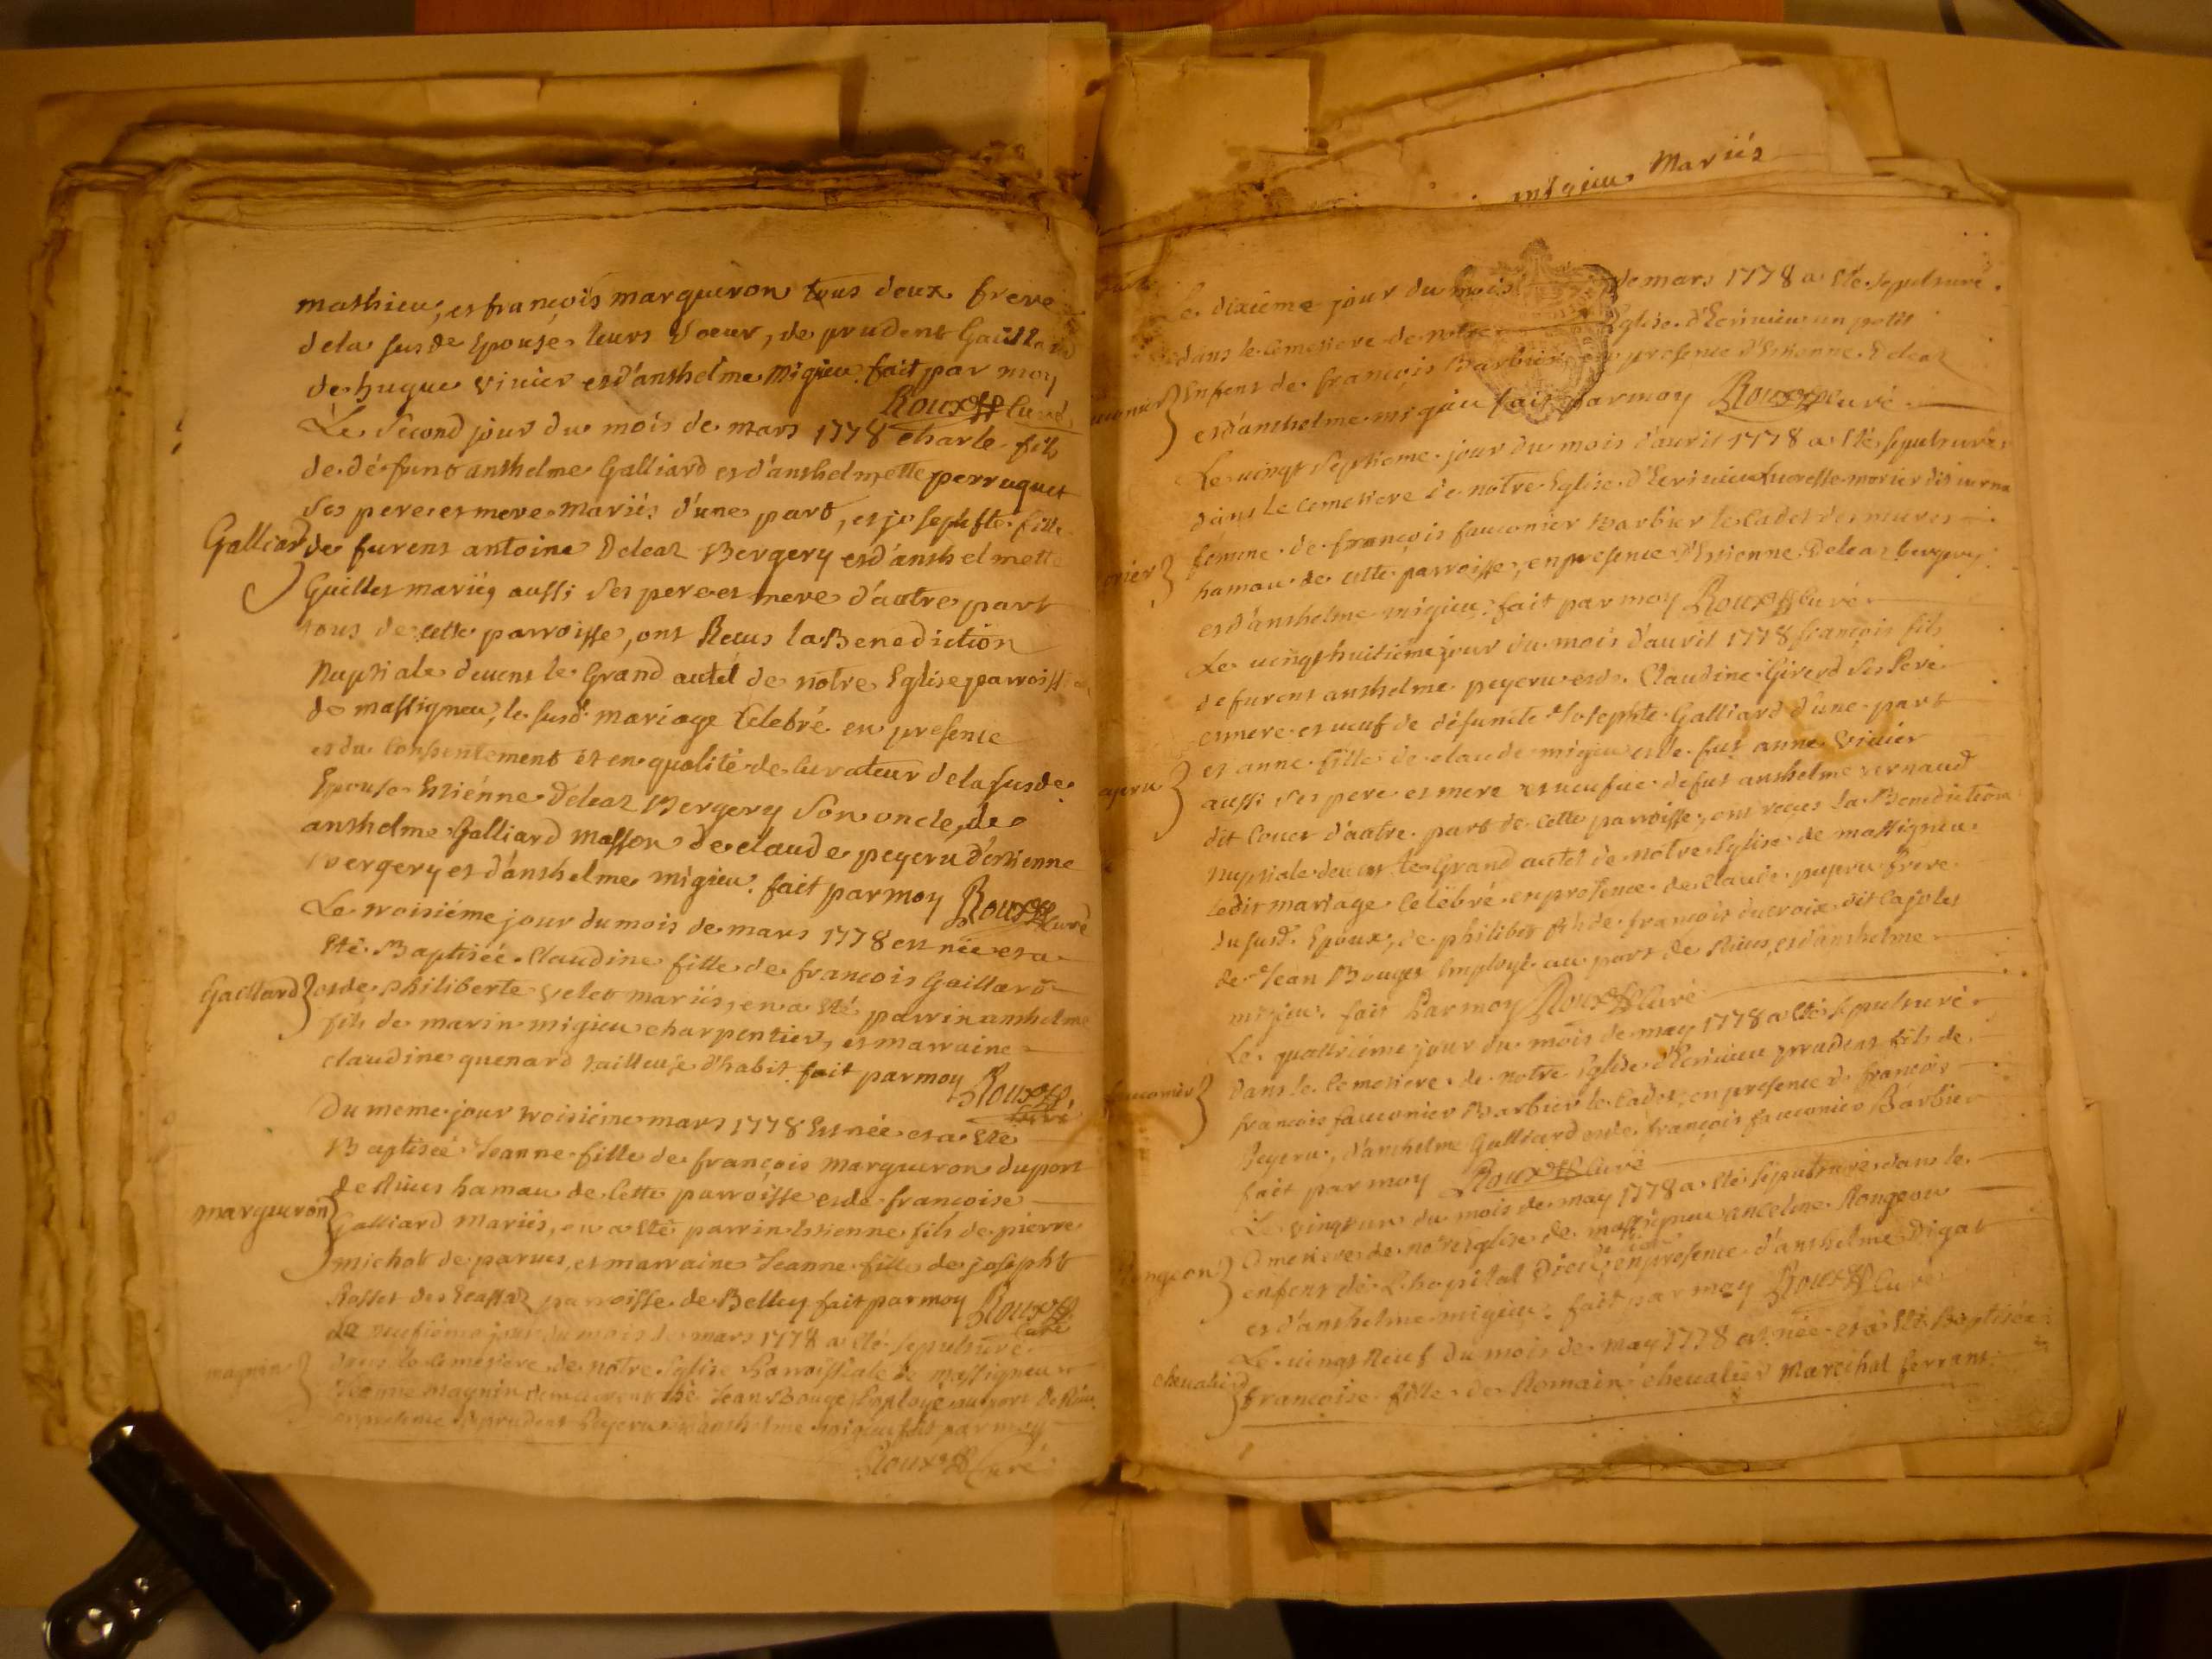 mathieu, et françois margueron tous deux frere
de la susde Epouse, leurs soeur, de prudent Gaillard
de hugue vivier et d'anthelme migieu. fait par moy
Roux curé
Le second jour du mois de mars 1778 charle fils
de défunt anthelme Galliard et d'anthelmette perruquet
ses pere et mere mariés d'une part, et josephte fille
Galliard
de furent antoine Deleaz Bergery et d'anthelmette
Guilles mariés aussi ses pere et mere d'autre part
tous de cette parroisse, ont Reçus la Benediction
Nuptiale devent le Grand autel de notre Eglise parroissiale
de massigneu, le susd. mariage Celebré en presence
et du Consentement et en qualité de curateur de la susde
Epouse Etiénne Deleaz Bergery son oncle, de
anthelme Galliard masson de claude peyeru d'etienne
vergery et d'anthelme migieu. fait par moy Roux curé
Le troisiéme jour du mois de mars 1778 est née et a
Eté Baptisée Claudine fille de françois Gaillard
Gaillard
et de philiberte velet mariés, en a Eté parrin anthelme
fils de marin migieu charpentier, et marraine
claudine quenard tailleuse d'habit. fait par moy Roux
curé
Du meme jour troisiéme mars 1778 Est née et a Eté
Baptisée Jeanne fille de françois margueron du port
de Rieus hamau de Cette parroisse et de françoise
margueron
Galliard Mariés, en a Eté parrin Etienne fils de pierre
michot de parves, et marraine Jeanne fille de josepht
Rosset des parroisse de Belley fait par moy Roux
curé
Le neufiéme jour du mois de mars 1778 a eté sepulturé
magnin
dans le Cemetiere de notre Eglise Parroissiale de massigneu
Jeanne magnin demeurent ché Jean Bouge Employé au port de Rieu
en presence de prudent Peyeru et anthelme migieu fait par moy
Roux Curé
migieu Mariés
Le dixiéme jour du mois de mars 1778 a Eté sepulturé
dans le Cemetiere de notre Eglise d'Ecrivieu un petit
Enfent de françois Barbier en presence d'Etienne Deleaz
et d'anthelme migieu fait par moy Roux curé
Le vingt septieme jour du mois d'avril 1778 a Eté sepulturée
dans le Cemetiere de notre Eglise d'Ecrivieu
femme de françois fauconier Barbier le Cadet des mures
hamau de cette parroisse, en presence d'Etienne Deleaz bergery
et d'anthelme migieu. fait par moy Roux Curé
Le vingt huitiéme jour du mois d'avril 1778 françois fils
de furent anthelme peyeru et de Claudine Girerd ses Pere
et mere et veuf de défuncte Josephte Galliard d'une part
peyeru
et anne fille de claude migieu et de fut anne vivier
aussi ses pere et mere et veufve de fut anthelme vernaud
dit Couer d'autre part de cette parroisse, ont reçus la Benediction
nuptiale devent le Grand autel de notre Eglise de massigneu
ledit mariage Celébré en presence de claude peyeru frere
du susd. Epoux, de philibert fils de françois ducroix dit Cajoles
de Jean Bouget Employé au port de Rieus, et d'anthelme
migieu. fait Par moy Roux Curé
Le quattriéme jour du mois de may 1778 a Eté sepulturé
fauconier
dans le Cemetiere de notre Eglise d'Ecrivieu prudent fils de
francois fauconier Barbier le Cadet, en presence de françois
Peyeru, d'anthelme Galliard et de françois fauconier Barbier
fait par moy Roux Curé
Le vingt un du mois de may 1778 a Eté sepulturé dans le
Cmetiere de notre Eglise de massigneu ancelme Rongeon
Rongeon
enfent de L'hopital en presence d'anthelme Digat
et d'anthelme migieu. fait par moy Roux Curé
Le vingt Neuf du mois de may 1778 est née et a Eté Baptisée
chevalier
françoise fille de Romain chevalier Marechal ferrant